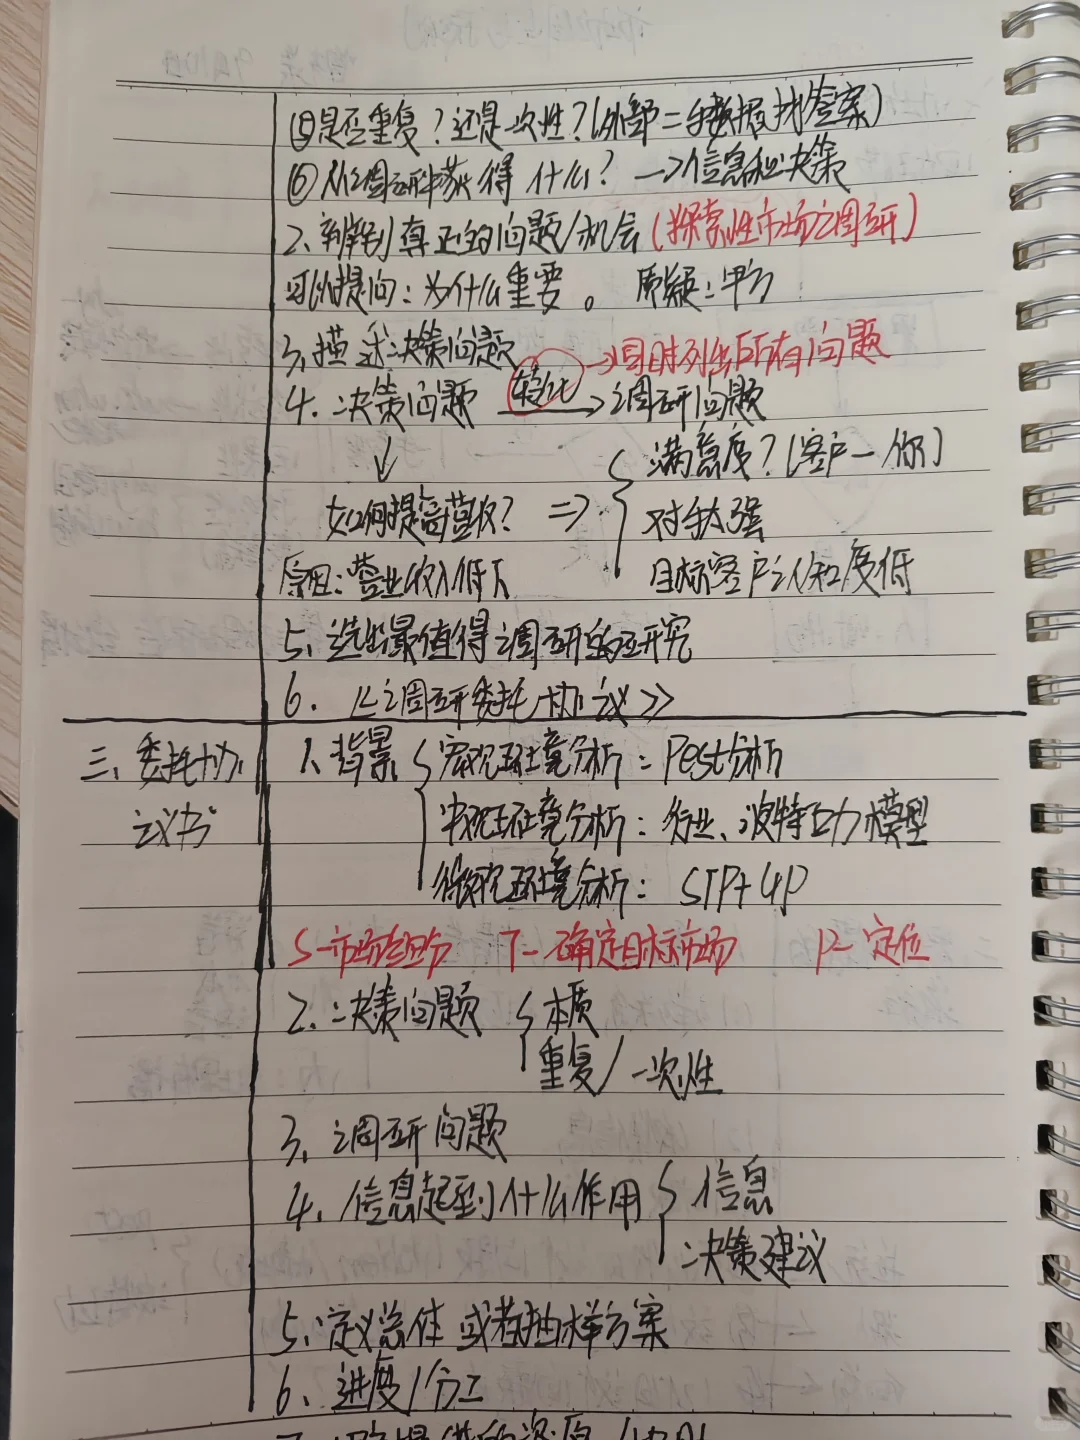 ⑤是否重复？还是一次性？(外部二手数据找答案)
⑥从调研中获得什么？→信息和决策
2、辨别真正的问题/机会(探索性市场调研)
可以提问：为什么重要。 质疑：甲方
3、描述决策问题
转化 →同时列出所有问题
4. 决策问题 → 调研问题
↓
满意度？(客户—你)
如何提高营收？ ⇒ 对手太强
原因：营业收入低下 目标客户认知度低
5、选出最值得调研的研究
6. 《调研委托协议》
三、委托协议书
1、背景 宏观环境分析：Pest分析
中观环境分析：行业、波特五力模型
微观环境分析：STP+4P
S—市场细分 T—确定目标市场 P—定位
2. 决策问题 本质
重复/一次性
3. 调研问题
4. 信息起到什么作用 信息
决策建议
5、定义总体或者抽样方案
6、进度/分工